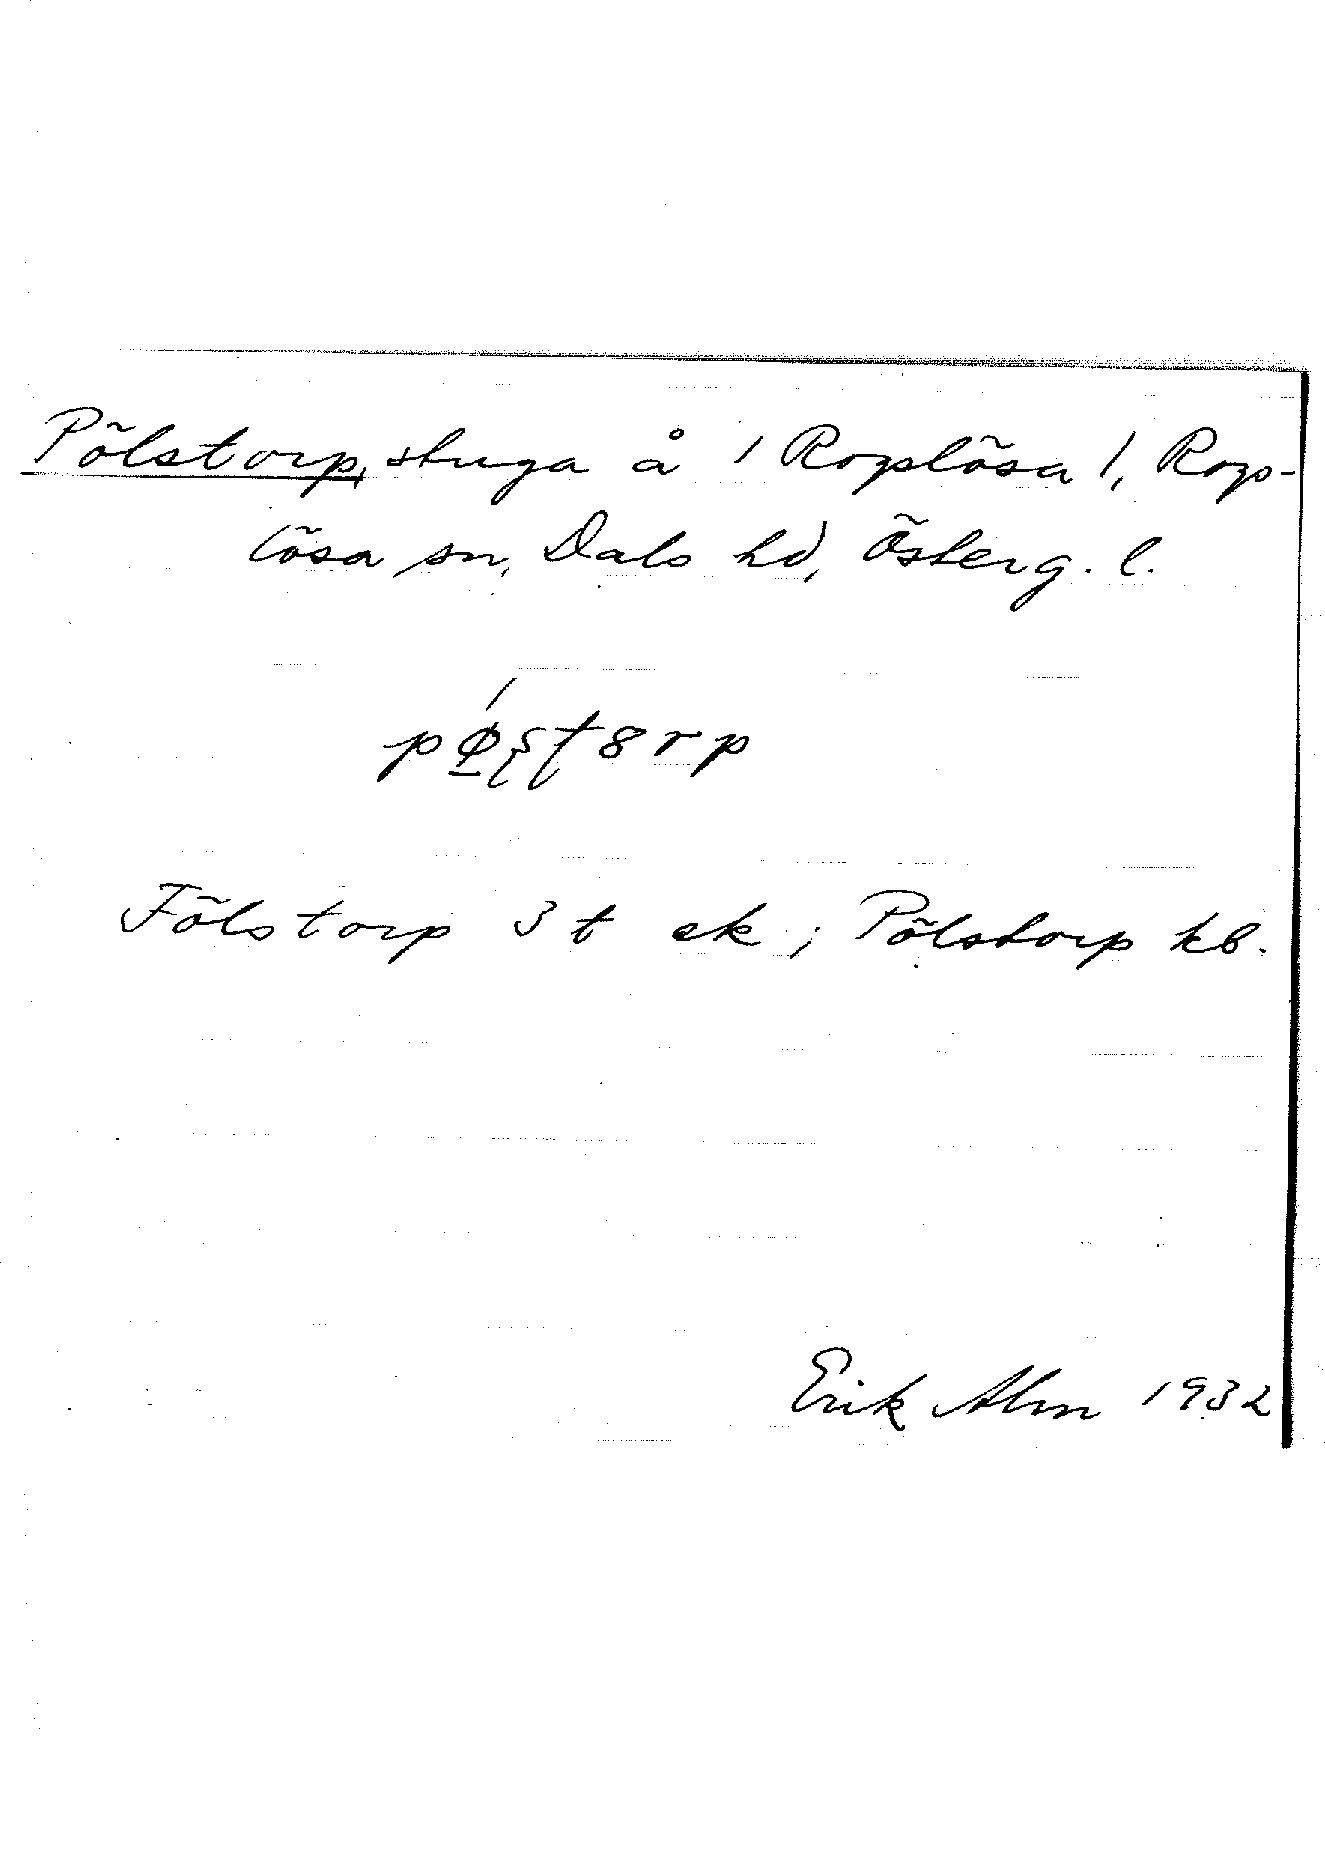 Pölstorp, stuga å 1 Rogslösa 1, Rogs-
lösa sn, Dals hd, Österg. l.
Fölstorp 3 t ek ; Pölstorp kb.
Erik Alm 1932